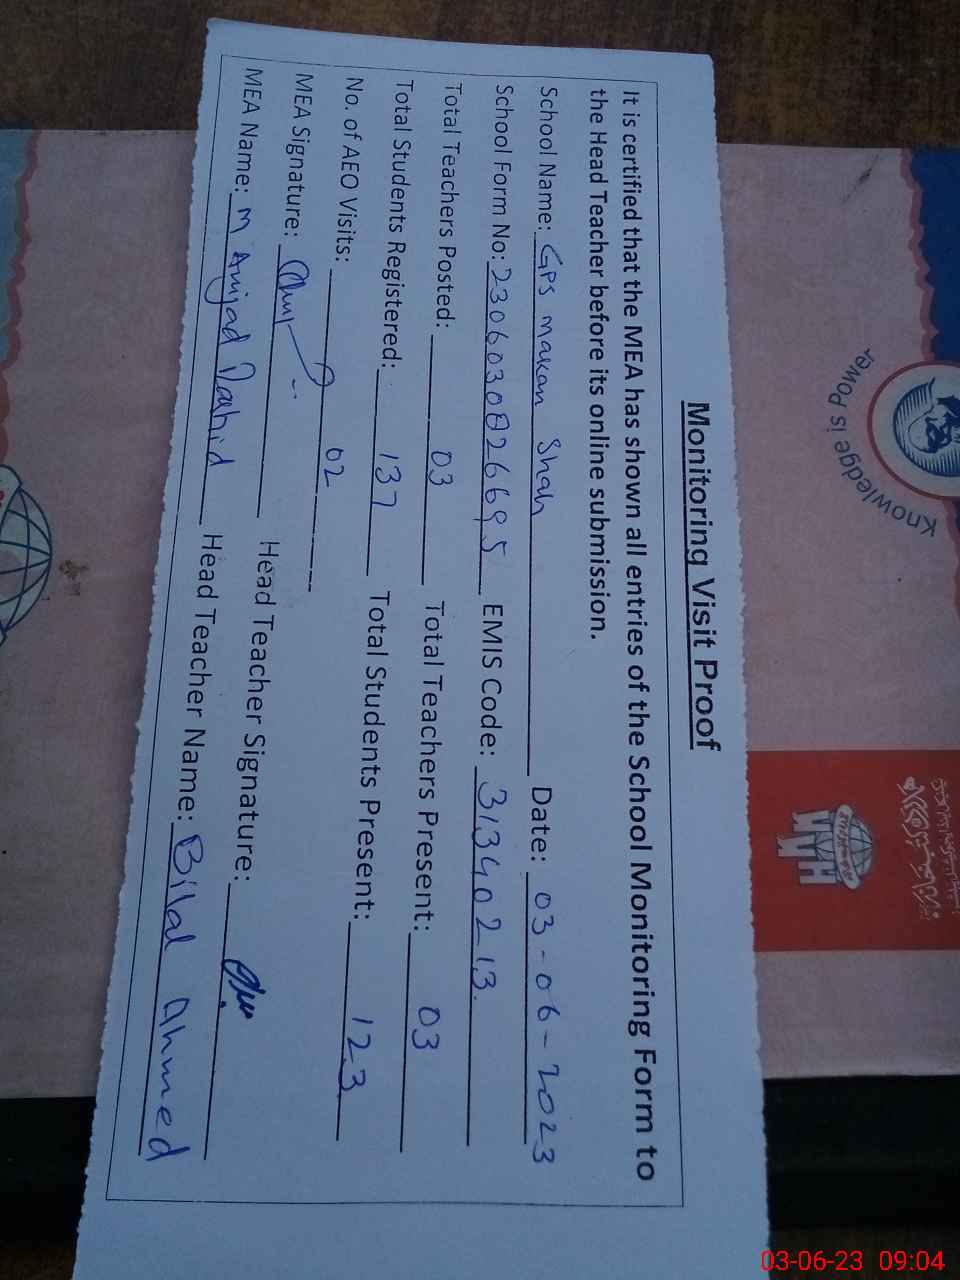 Monitoring Visit Proof
It is certified that the MEA has shown all entries of the School Monitoring Form to
the Head Teacher before its online submission.
School Name: GPS makan Shah Date: 03-06-2023
School Form No: 2306030826695 EMIS Code: 31340213.
Total Teachers Posted: 03 Total Teachers Present: 03
Total Students Registered: 137 Total Students Present: 123
No. of AEO Visits: 02
MEA Signature: Head Teacher Signature:
MEA Name: M Amjad Head Teacher Name: Bilal Ahmed
Knowledge is Power
03-06-23 09:04